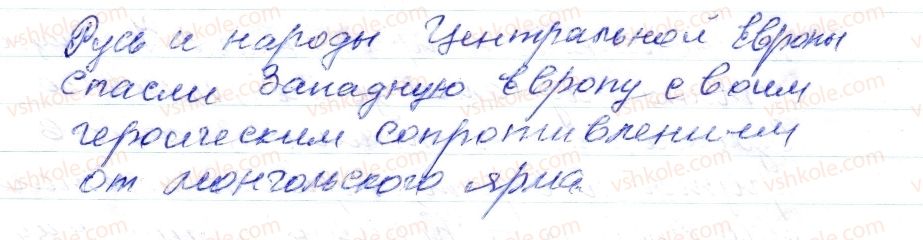 Русь и народы Центральной Европы
спасли Западную Европу своим
героическим сопротивлением
от монгольского ярма